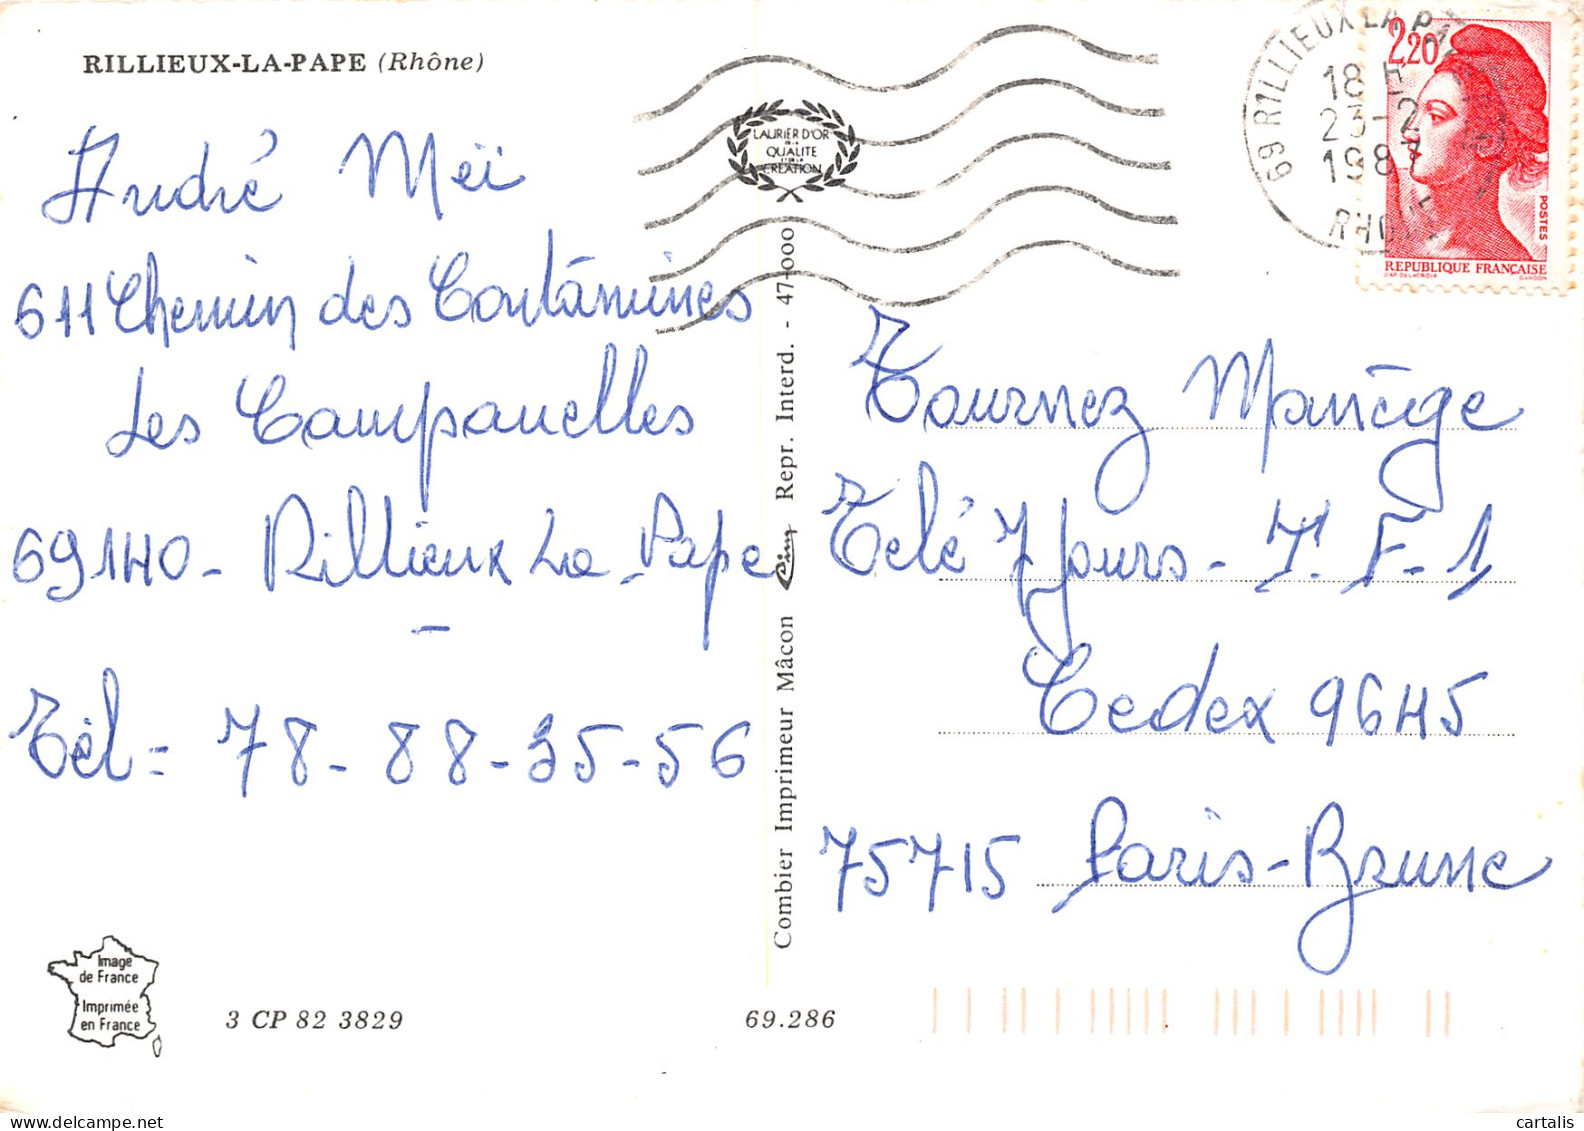 RILLIEUX-LA-PAPE (Rhône)
André Meï
611 Chemin des Contamines
Les Campanelles
69140 - Rillieux La Pape
Tél = 78-88-35-56
LAURIER D'OR
DE LA
QUALITE
ET DE LA
CREATION
69 RILLIEUX LA PAPE
18 H
23-2
1987
RHONE
2,20
POSTES
REPUBLIQUE FRANÇAISE
D'AP. DELACROIX
GANDON
Tournez Manège
Télé 7 Jours - T.F-1
Cedex 96H5
75715 Paris-Brune
Combier Imprimeur Mâcon Cim Repr. Interd. - 47-000
Image
de France
Imprimée
en France
3 CP 82 3829
69.286
cartalis
www.delcampe.net